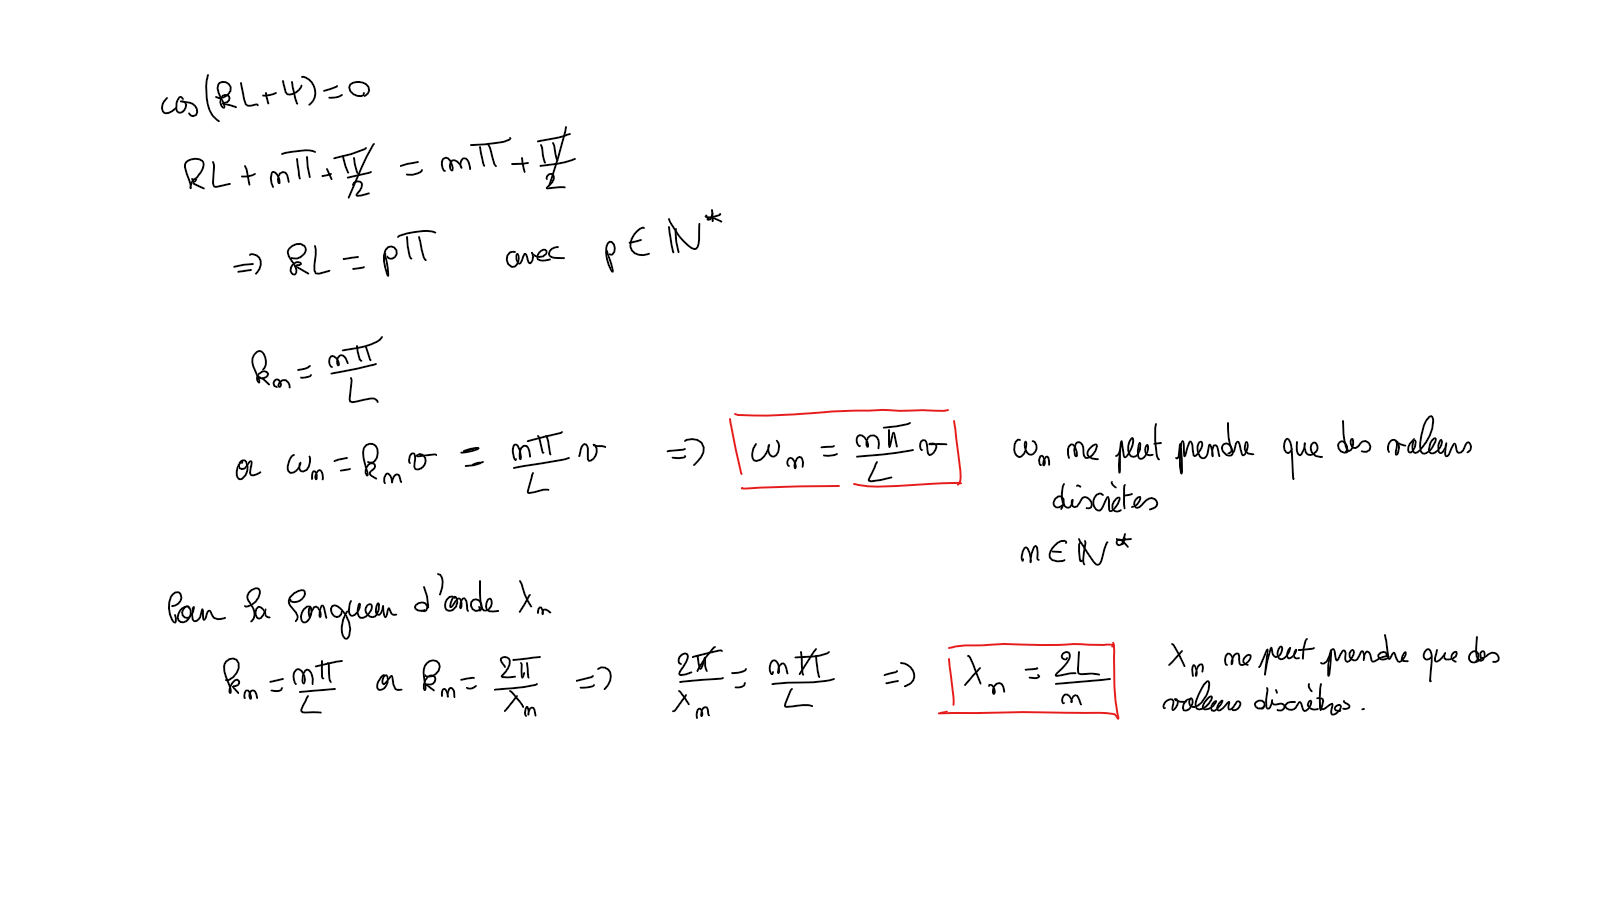 cos(kL+ψ)=0
kL + nπ + π/2 = mπ + π/2
=> kL = pπ avec p ∈ ℕ*
kₙ = nπ/L
or ωₙ = kₙ v = nπ/L v => ωₙ = nπ/L v ωₙ ne peut prendre que des valeurs
discrètes
n ∈ ℕ*
Pour la longueur d'onde λₙ
kₙ = nπ/L or kₙ = 2π/λₙ => 2π/λₙ = nπ/L => λₙ = 2L/n λₙ ne peut prendre que des
valeurs discrètes.